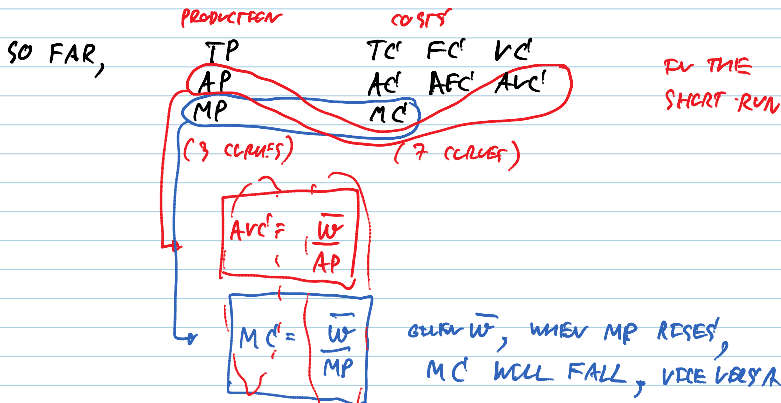 PRODUCTION COSTS
SO FAR, TP TC FC VC
AP AC AFC AVC IN THE
MP MC SHORT-RUN
(3 CURVES) (7 CURVES)
AVC = w̅ / AP
MC = w̅ / MP
GIVEN w̅, WHEN MP RISES,
MC WILL FALL, VICE VERSA